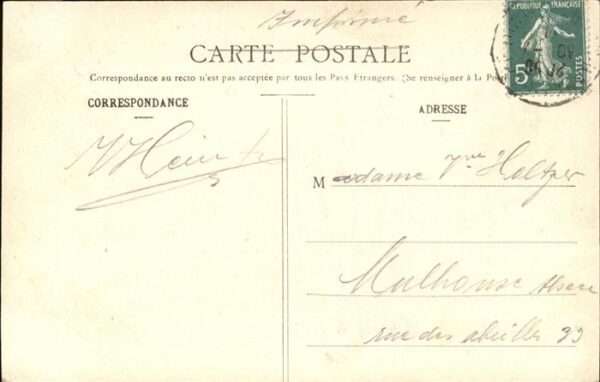 Imprimé
CARTE POSTALE
Correspondance au recto n'est pas acceptée par tous les Pays Etrangers. (Se renseigner à la Poste
CORRESPONDANCE
ADRESSE
REPUBLIQUE FRANÇAISE
5
POSTES
Madame Vve Holtzer
Mulhouse Alsace
rue des abeilles 33